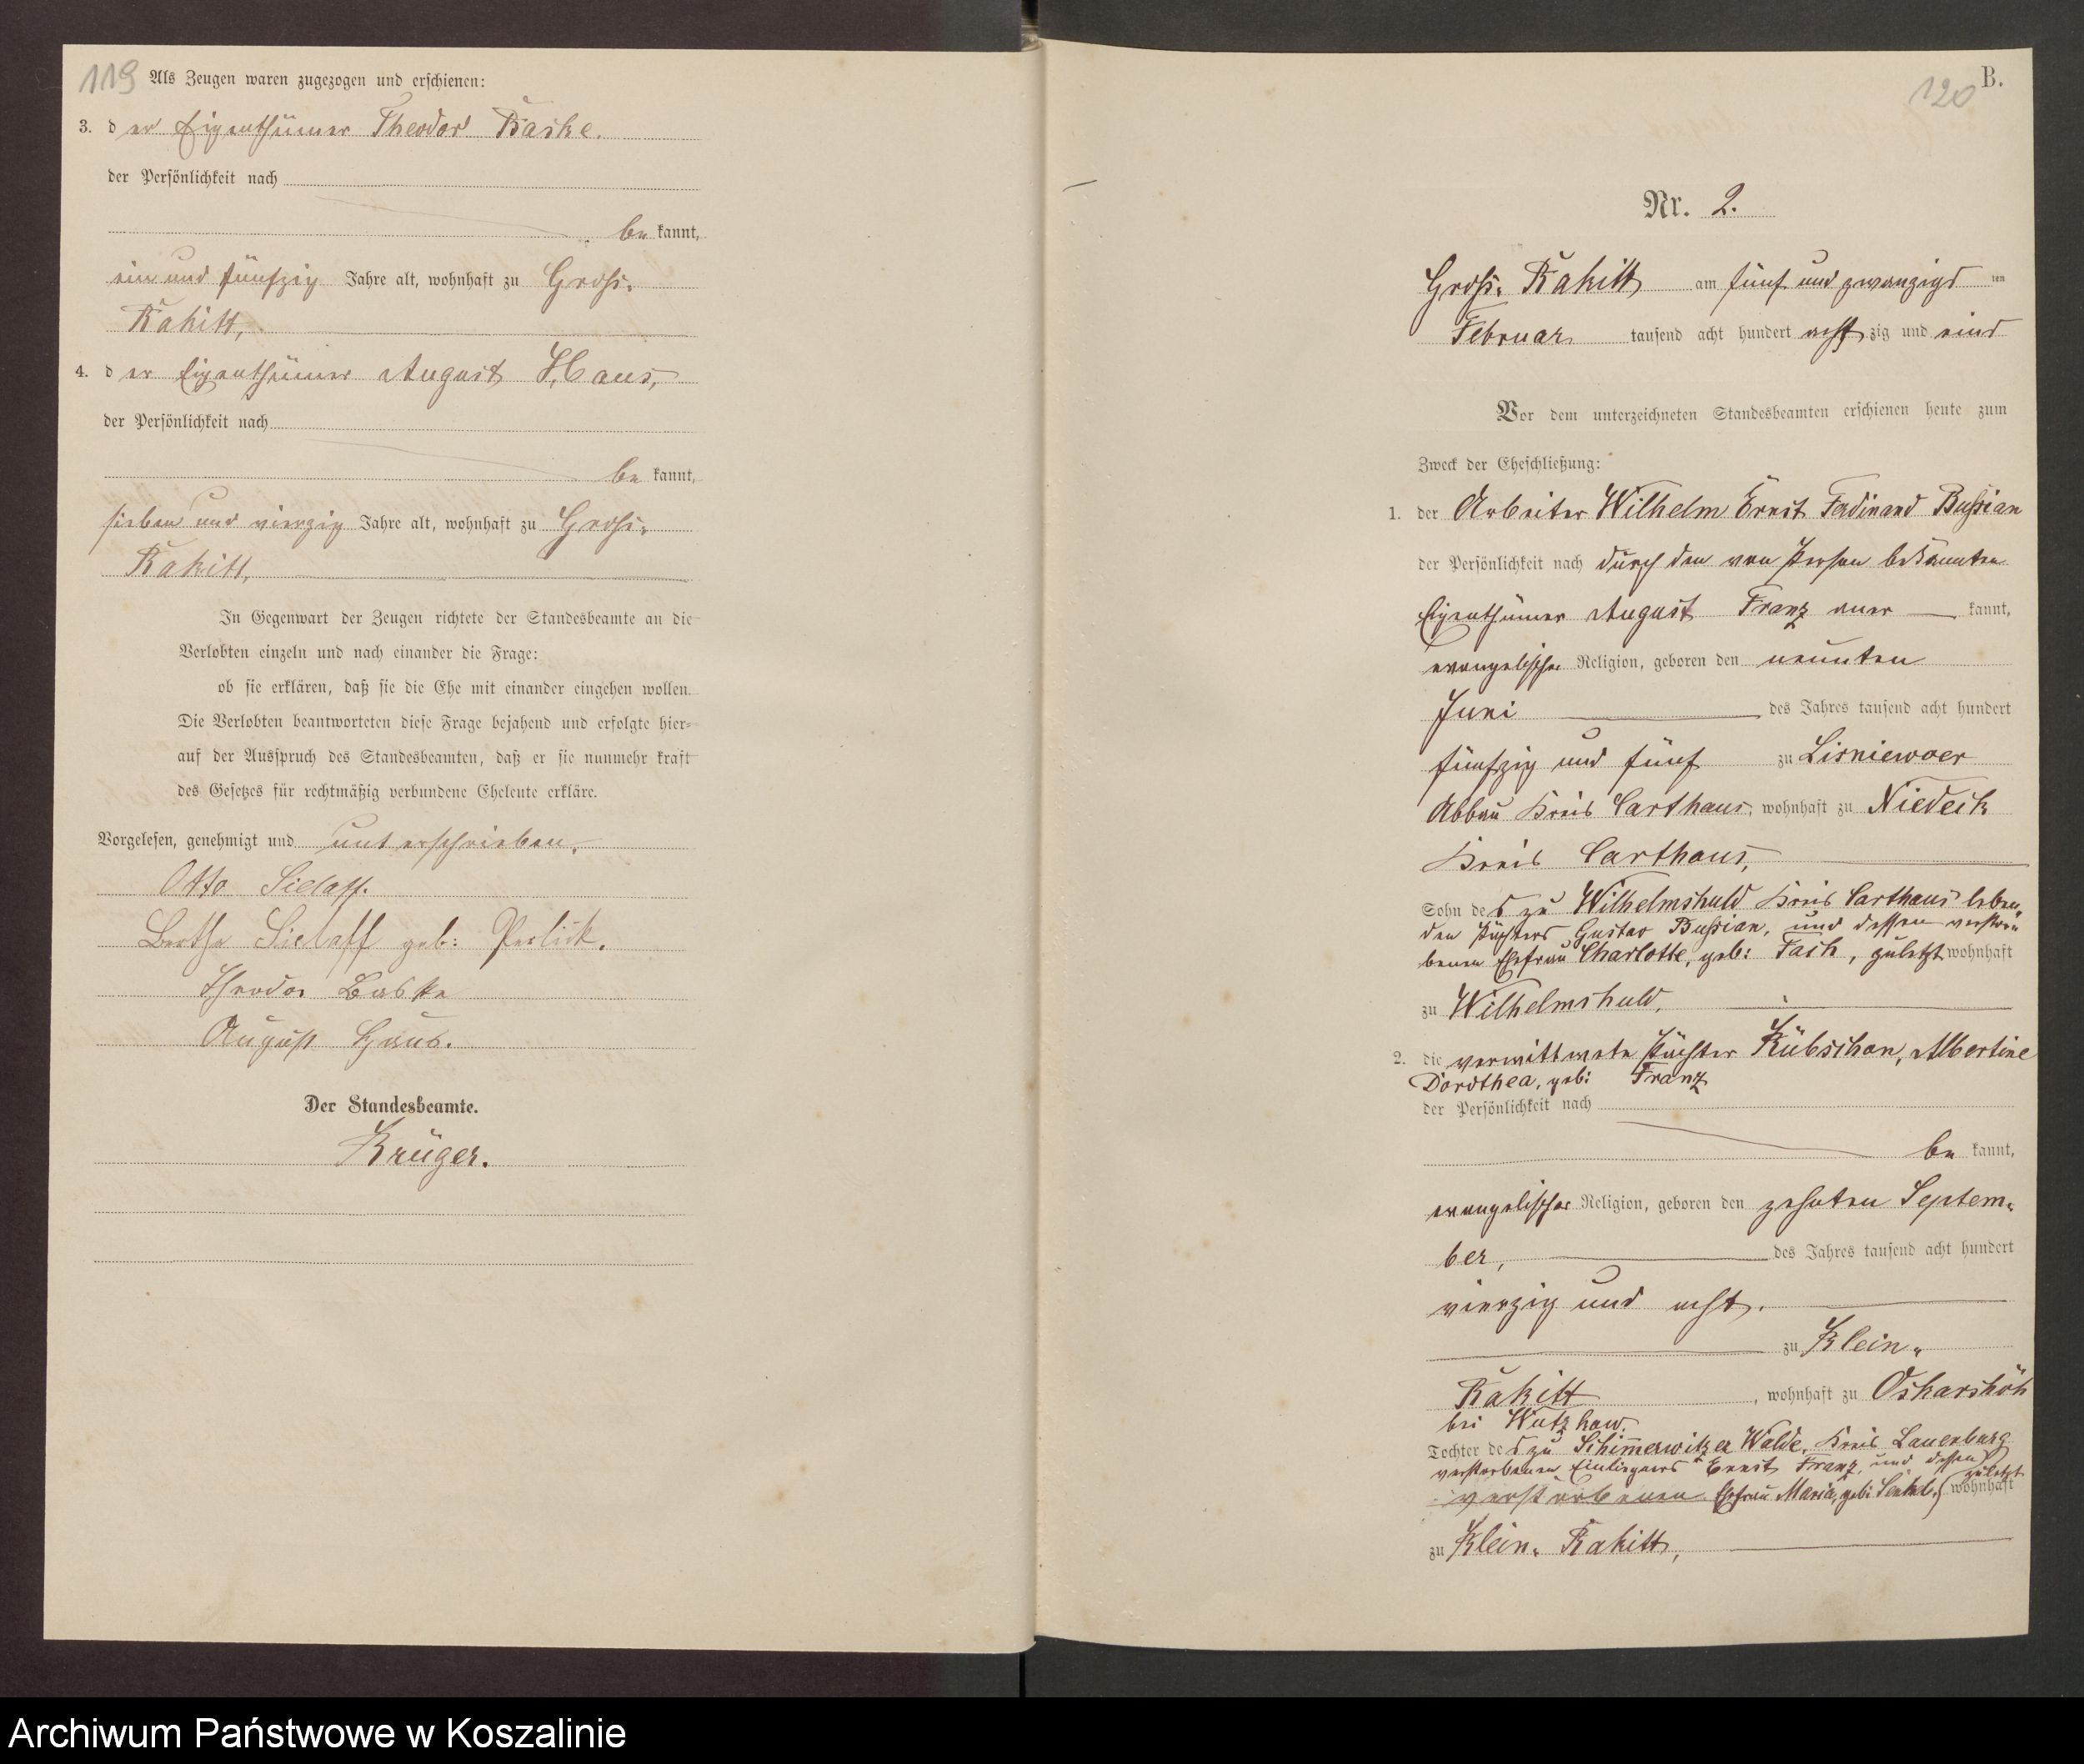 119
Als Zeugen waren zugezogen und erschienen:
3. der Eigenthümer Theodor Baske.
der Persönlichkeit nach
bekannt,
ein und fünfzig Jahre alt, wohnhaft zu Gross-
Rakitt,
4. der Eigenthümer August Haus,
der Persönlichkeit nach
bekannt,
sieben und vierzig Jahre alt, wohnhaft zu Gross-
Rakitt,
In Gegenwart der Zeugen richtete der Standesbeamte an die
Verlobten einzeln und nach einander die Frage:
ob sie erklären, daß sie die Ehe mit einander eingehen wollen.
Die Verlobten beantworteten diese Frage bejahend und erfolgte hier-
auf der Ausspruch des Standesbeamten, daß er sie nunmehr kraft
des Gesetzes für rechtmäßig verbundene Eheleute erkläre.
Vorgelesen, genehmigt und unterschrieben.
Otto Sielaff.
Bertha Sielaff geb: Perlick.
Theodor Baske
August Haus.
Der Standesbeamte.
Krüger.
B.
120
Nr. 2.
Gross-Rakitt am fünf und zwanzigsten
Februar tausend acht hundert achtzig und eins
Vor dem unterzeichneten Standesbeamten erschienen heute zum
Zweck der Eheschließung:
1. der Arbeiter Wilhelm Ernst Ferdinand Bußian
der Persönlichkeit nach durch den von Person bekannten
Eigenthümer August Franz aner kannt,
evangelischer Religion, geboren den neunten
Juni des Jahres tausend acht hundert
fünfzig und fünf zu Lisniewoer
Abbau Kreis Carthaus, wohnhaft zu Niedeck
Kreis Carthaus,
Sohn des zu Wilhelmshuld Kreis Carthaus leben-
den Pächters Gustav Bußian, und dessen verstor-
benen Ehefrau Charlotte, geb: Tash, zuletzt wohnhaft
zu Wilhelmshuld,
2. die verwittwete Pächter Kübschon, Albertine
Dorothea, geb: Franz
der Persönlichkeit nach
bekannt,
evangelischer Religion, geboren den zehnten Septem-
ber, des Jahres tausend acht hundert
vierzig und acht.
zu Klein-
Rakitt, wohnhaft zu Oskarshöh
bei Wutzkow.
Tochter des zu Schimmerwitzer Walde, Kreis Lauenburg
verstorbenen Einliegers Ernst Franz, und dessen
verstorbenen Ehefrau Maria, geb: zuletzt wohnhaft
zu Klein-Rakitt,
Archiwum Państwowe w Koszalinie